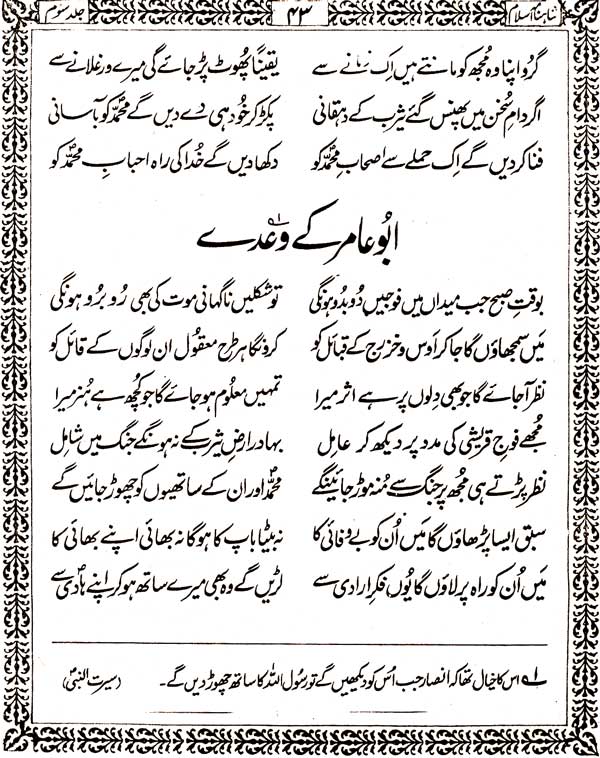 شاہنامہ اسلام ۴۳ جلد سوم
گرو اپنا وہ مجھ کو مانتے ہیں اِک زمانے سے یقیناً پھوٹ پڑ جائے گی میرے ورغلانے سے
اگر دامِ سُخن میں پھنس گئے یثرب کے دہقانی پکڑ کر خُود ہی دے دیں گے محمدؐ کو بآسانی
فنا کر دیں گے اِک حملے سے اصحابِ محمدؐ کو دکھا دیں گے خُدا کی راہ احبابِ محمدؐ کو
ابُو عامر کے وعدے ؎۱
بوقتِ صبح جب میداں میں فوجیں دُوبدُو ہونگی تو شکلیں ناگہانی موت کی بھی رُوبرُو ہونگی
مَیں سمجھاؤں گا جا کر اَوس و خزرج کے قبائل کو کرونگا ہر طرح معقُول ان لوگوں کے قائل کو
نظر آ جائے گا جو بھی دِلوں پر ہے اثر میرا تمہیں معلُوم ہو جائے گا جو کُچھ ہے ہُنر میرا
مُجھے فوجِ قریشی کی مدد پر دیکھ کر عامِل بہادر ارضِ یثرب کے نہ ہونگے جنگ میں شامِل
نظر پڑتے ہی مُجھ پر جنگ سے مُنہ موڑ جائینگے محمدؐ اور ان کے ساتھیوں کو چھوڑ جائیں گے
سبق ایسا پڑھاؤں گا مَیں اُن کو بے وفائی کا نہ بیٹا باپ کا ہوگا نہ بھائی اپنے بھائی کا
مَیں اُن کو راہ پر لاؤں گا یُوں فکرِ ارادی سے لڑیں گے وہ بھی میرے ساتھ ہو کر اپنے ہادیؐ سے
؎۱ اس کا خیال تھا کہ انصار جب اُس کو دیکھیں گے تو رسُول اللہ کا ساتھ چھوڑ دیں گے۔ (سیرت النبیؐ)